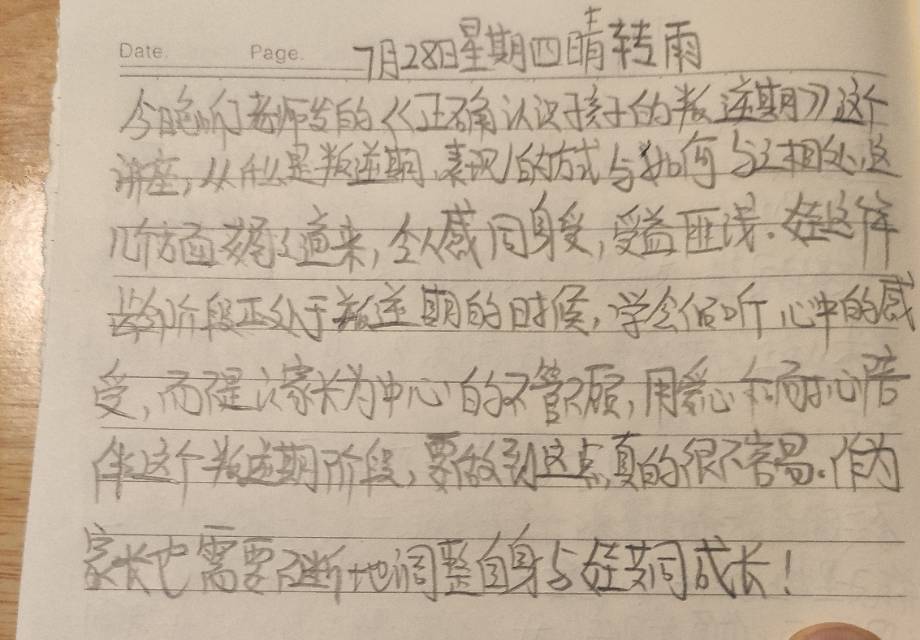 Date. Page. 7月28日星期四晴转雨
今日晚听了老师发的《正确认识于孩子的叛逆期》这个
讲座,从什么是叛逆期,表现的方式与如何与之相处,这
几个方面娓娓道来,令人感同身受,受益匪浅.娃这样
阶段正处于叛逆期的时候,学会倾听心中的感
受,而不是以家长为中心的不管不顾,用爱心和耐心陪
伴这个叛逆期阶段,要做到这点真的很不容易.作为
家长也需要不断地调整自身与娃共同成长!